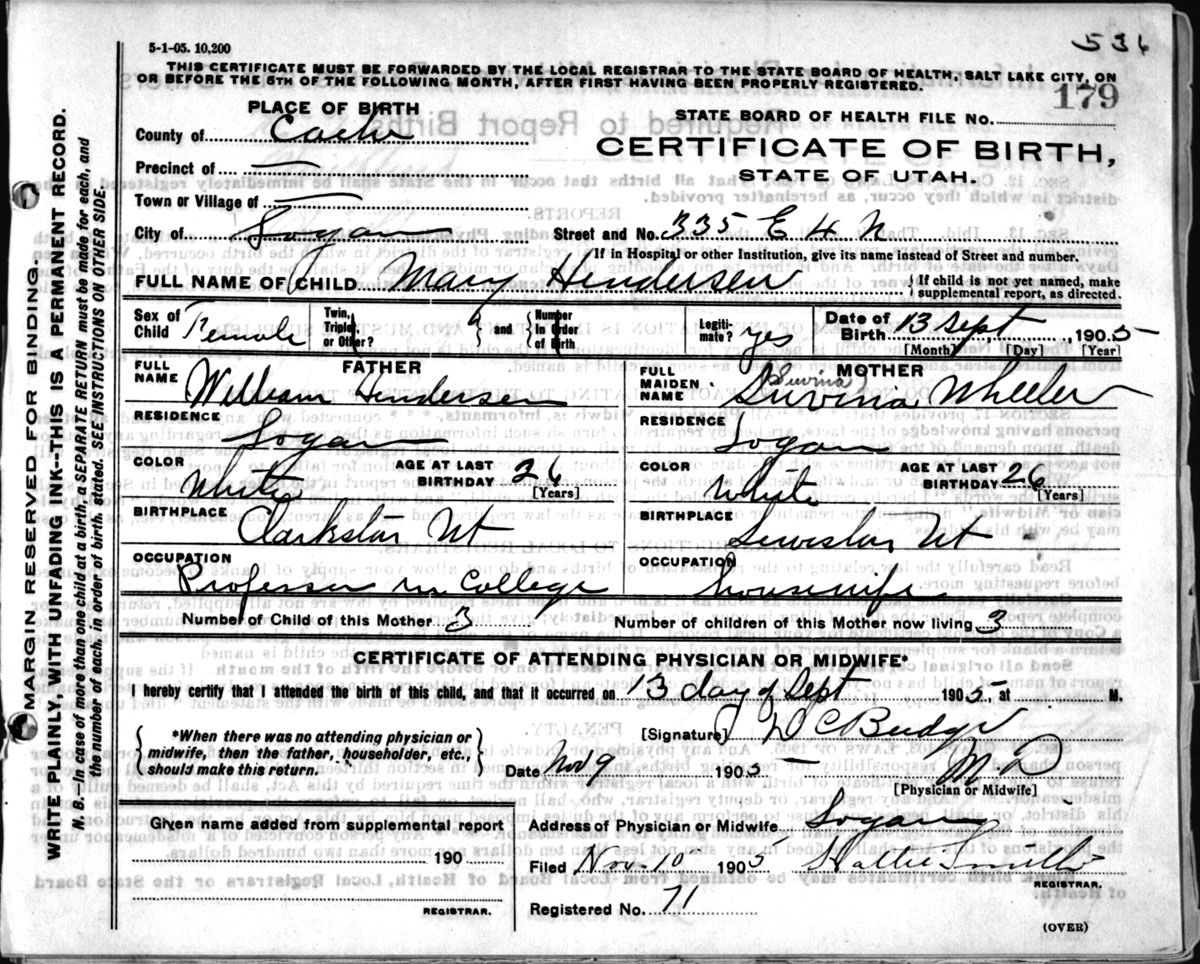 5-1-05. 10,200
536
THIS CERTIFICATE MUST BE FORWARDED BY THE LOCAL REGISTRAR TO THE STATE BOARD OF HEALTH, SALT LAKE CITY, ON
OR BEFORE THE 5TH OF THE FOLLOWING MONTH, AFTER FIRST HAVING BEEN PROPERLY REGISTERED.
179
PLACE OF BIRTH
STATE BOARD OF HEALTH FILE No.
County of Cache
CERTIFICATE OF BIRTH,
Precinct of
STATE OF UTAH.
Town or Village of
City of Logan Street and No. 335 E 4 N
If in Hospital or other Institution, give its name instead of Street and number.
FULL NAME OF CHILD Mary Hendersen { If child is not yet named, make supplemental report, as directed.
Sex of Child Female Twin, Triplet or Other? } and { Number in Order of Birth Legiti-mate? yes Date of Birth 13 Sept, 1905
[Month] [Day] [Year]
FATHER
FULL NAME William Hendersen
RESIDENCE Logan
COLOR White AGE AT LAST BIRTHDAY 26 [Years]
BIRTHPLACE Clarkston Ut
OCCUPATION Professor in College
MOTHER
FULL MAIDEN NAME Wheeler
RESIDENCE Logan
COLOR White AGE AT LAST BIRTHDAY 26 [Years]
BIRTHPLACE Lewiston Ut
OCCUPATION housewife
Number of Child of this Mother 3 Number of children of this Mother now living 3
CERTIFICATE OF ATTENDING PHYSICIAN OR MIDWIFE*
I hereby certify that I attended the birth of this child, and that it occurred on 13 day of Sept 1905, at M.
{ *When there was no attending physician or
midwife, then the father, householder, etc.,
should make this return. }
[Signature] D C Budge
Date Nov 9 1905 M D
[Physician or Midwife]
Given name added from supplemental report
190
REGISTRAR.
Address of Physician or Midwife Logan
Filed Nov. 10 1905 Hattie Smith
REGISTRAR.
Registered No. 71
(OVER)
MARGIN RESERVED FOR BINDING.
WRITE PLAINLY WITH UNFADING INK--THIS IS A PERMANENT RECORD.
N. B.—In case of more than one child at a birth, a SEPARATE RETURN must be made for each, and
the number of each, in order of birth, stated. SEE INSTRUCTIONS ON OTHER SIDE.